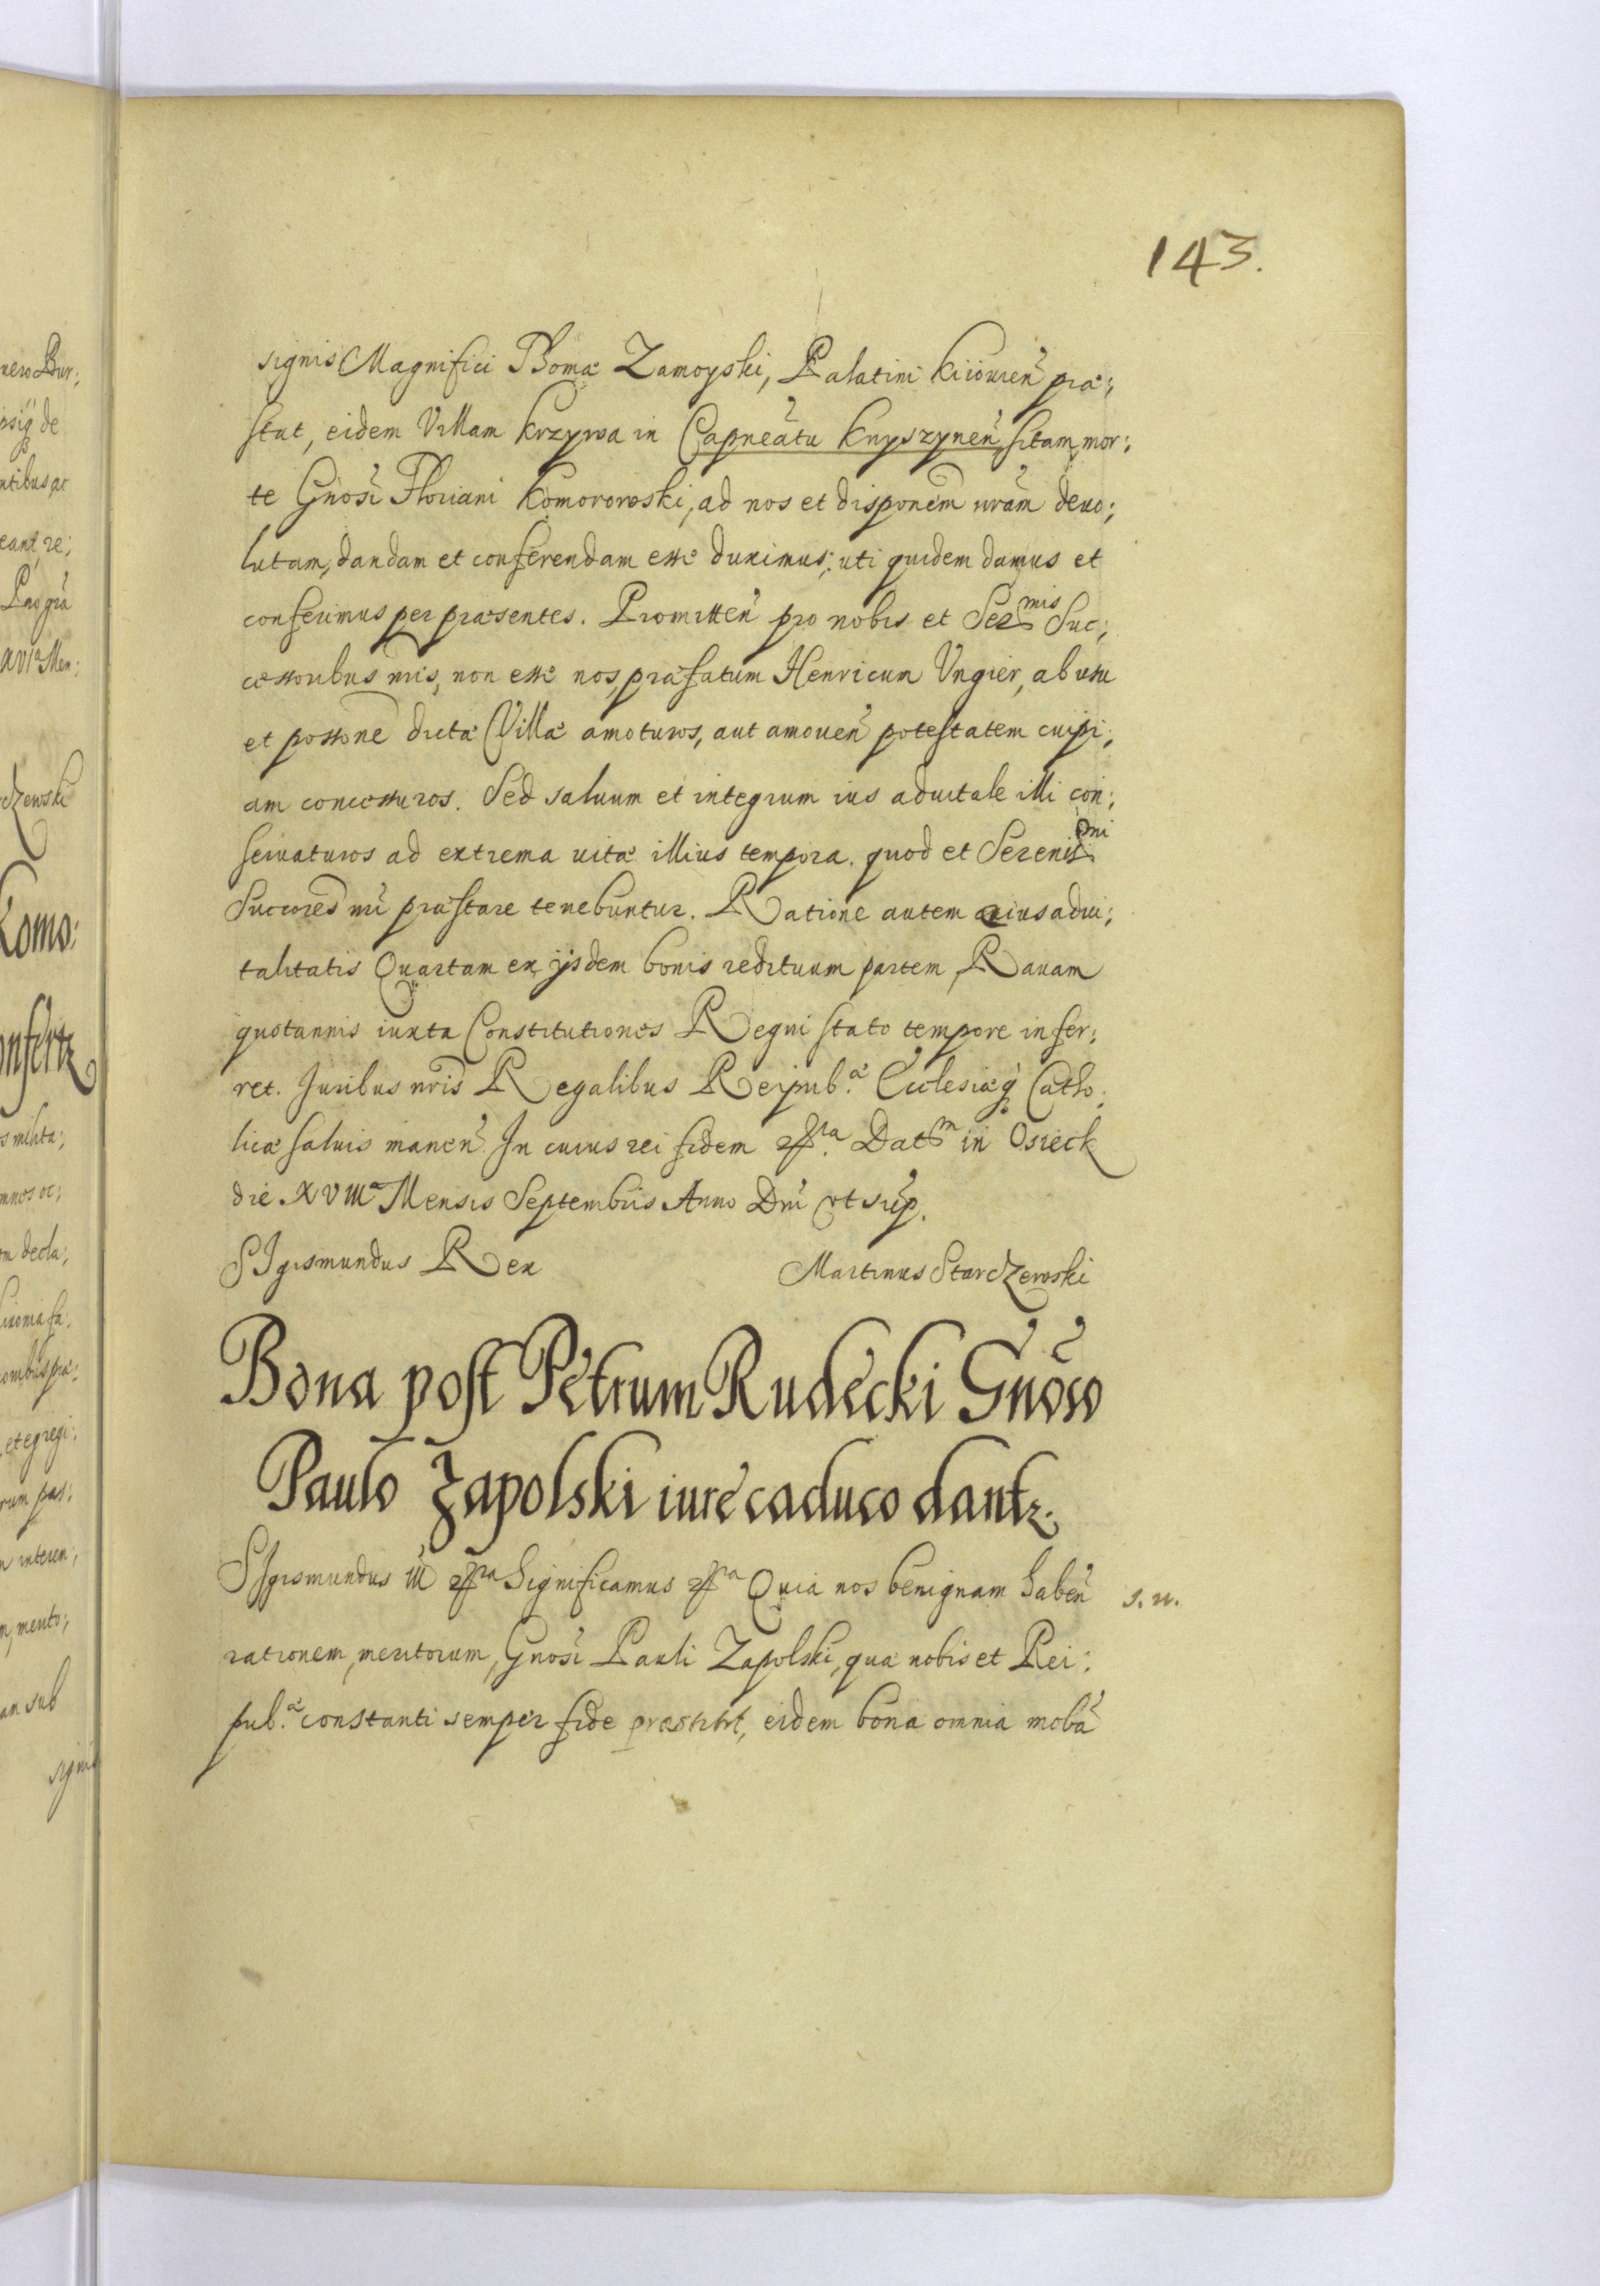 143.
signis Magnifici Thomæ Zamoyski, Palatini Kiiouien̄ præ;
stat, eidem Villam Krzywa in Capneātu Knyszynen̄ sitam, mor:
te Gn̄osi Floriani Komorowski, ad nos et disponem̄ nrām deuo;
lutam, dandam et conferendam esse duximus; uti quidem damus et
conferimus per præsentes. Promitten̄ pro nobis et Ser mis Suc;
cessoribus nr̄is, non esse nos, præfatum Henricum Vngier, ab usu
et possone dictæ Villæ amoturos, aut amouen̄ potestatem cuipi;
am concessuros. Sed saluum et integrum ius aduitale illi con;
seruaturos ad extrema uitæ illius tempora. quod et Serenis smi
Succores nr̄i præstare tenebuntur. Ratione autem eius adui;
talitatis Quartam ex ijsdem bonis redituum partem, Rauam
quotannis iuxta Constitutiones Regni stato tempore infer;
ret. Juribus nr̄is Regalibus Reipub.æ Ecclesiæq̄ Catho;
licæ saluis manen̄. In cuius rei fidem etc ra. Dat m in Osieck
die XVIII a Mensis Septembris Anno Dn̄i vt sup̄.
SIgismundus Rex Martinus Starczewski
Bona post Petrum Rudecki Gn̄oso
Paulo Zapolski iure caduco dantr.
SIgismundus III etc ra Significamus etc ra Quia nos benignam haben̄ s. n.
rationem, meritorum, Gnosi Pauli Zapolski, quæ nobis et Rei:
pub.æ constanti semper fide præstitit, eidem bona omnia mobā